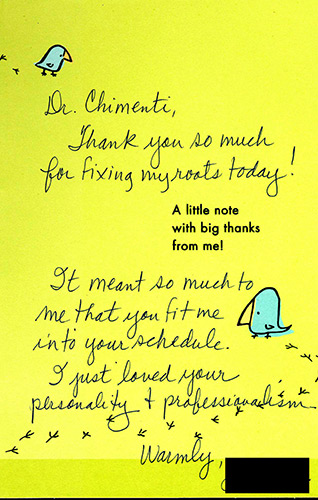 Dr. Chimenti,
Thank you so much
for fixing my roots today!
A little note
with big thanks
from me!
It meant so much to
me that you fit me
into your schedule.
I just loved your
personality & professionalism
Warmly,